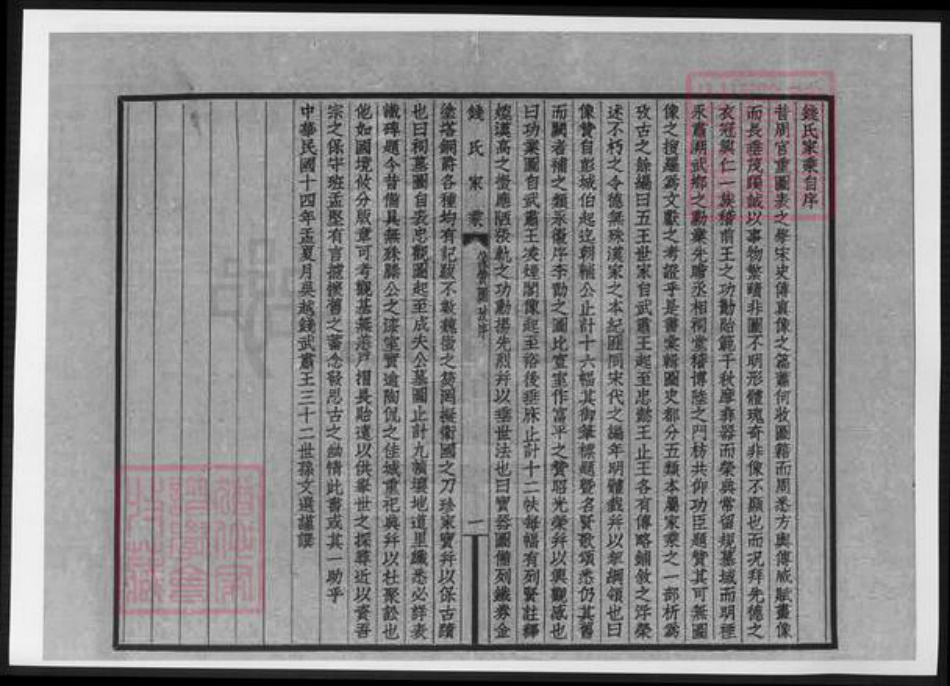 錢氏家乘自序
昔周官重圖表之學宋史傳真像之篇蕭何收圖籍而周悉方輿傅咸賦畫像
而長垂茂躅誠以事物繁賾非圖不明形體瑰奇非像不顯也而況拜先德之
衣冠興仁一族稽前王之功勳貽範千秋摩彝器而榮典常留規墓域而明禋
永肅湖武鄉之勳業先瞻丞相祠堂稽博陸之門枋共仰功臣題贊其可無圖
像之搜羅為文獻之考證乎是書彙輯圖史都分五類本屬家乘之一部析為
攷古之餘編曰五王世家自武肅王起至忠懿王止王各有傳略鋪敘之浮榮
述不朽之令德無殊漢家之本紀匪同宋代之編年明體裁幷以挈綱領也曰
像贊自彭城伯起迄朝輔公止計十六幅其御筆標題暨名賢歌頌悉仍其舊
而闕者補之類永徽序李勣之圖比宣室作富平之贊昭光榮幷以興觀感也
曰功業圖自武肅王凌煙閣像起至裕後垂床止計十二帙每幅有列賢註釋
媲漢高之徵應陋張軌之功勳揚先烈幷以垂世法也曰寶器圖備列鐵券金
塗塔銅爵各種均有記跋不數魏徵之笏罔擬衛國之刀珍家寶幷以保古蹟
也曰祠墓圖自表忠觀圖起至成夫公墓圖止計九禎壤地道里纖悉必詳表
識碑題今昔備具無殊滕公之漆室實逾陶侃之佳城重祀典幷以杜聚訟也
他如國境攸分版章可考觀基無忘戶揖長貽遠以供舉世之探尋近以資吾
宗之保守班孟堅有言攄懷舊之蓄念發思古之幽情此書或其一助乎
中華民國十四年孟夏月吳越錢武肅王三十二世孫文選謹譔
錢氏家乘
像贊圖 故序
一